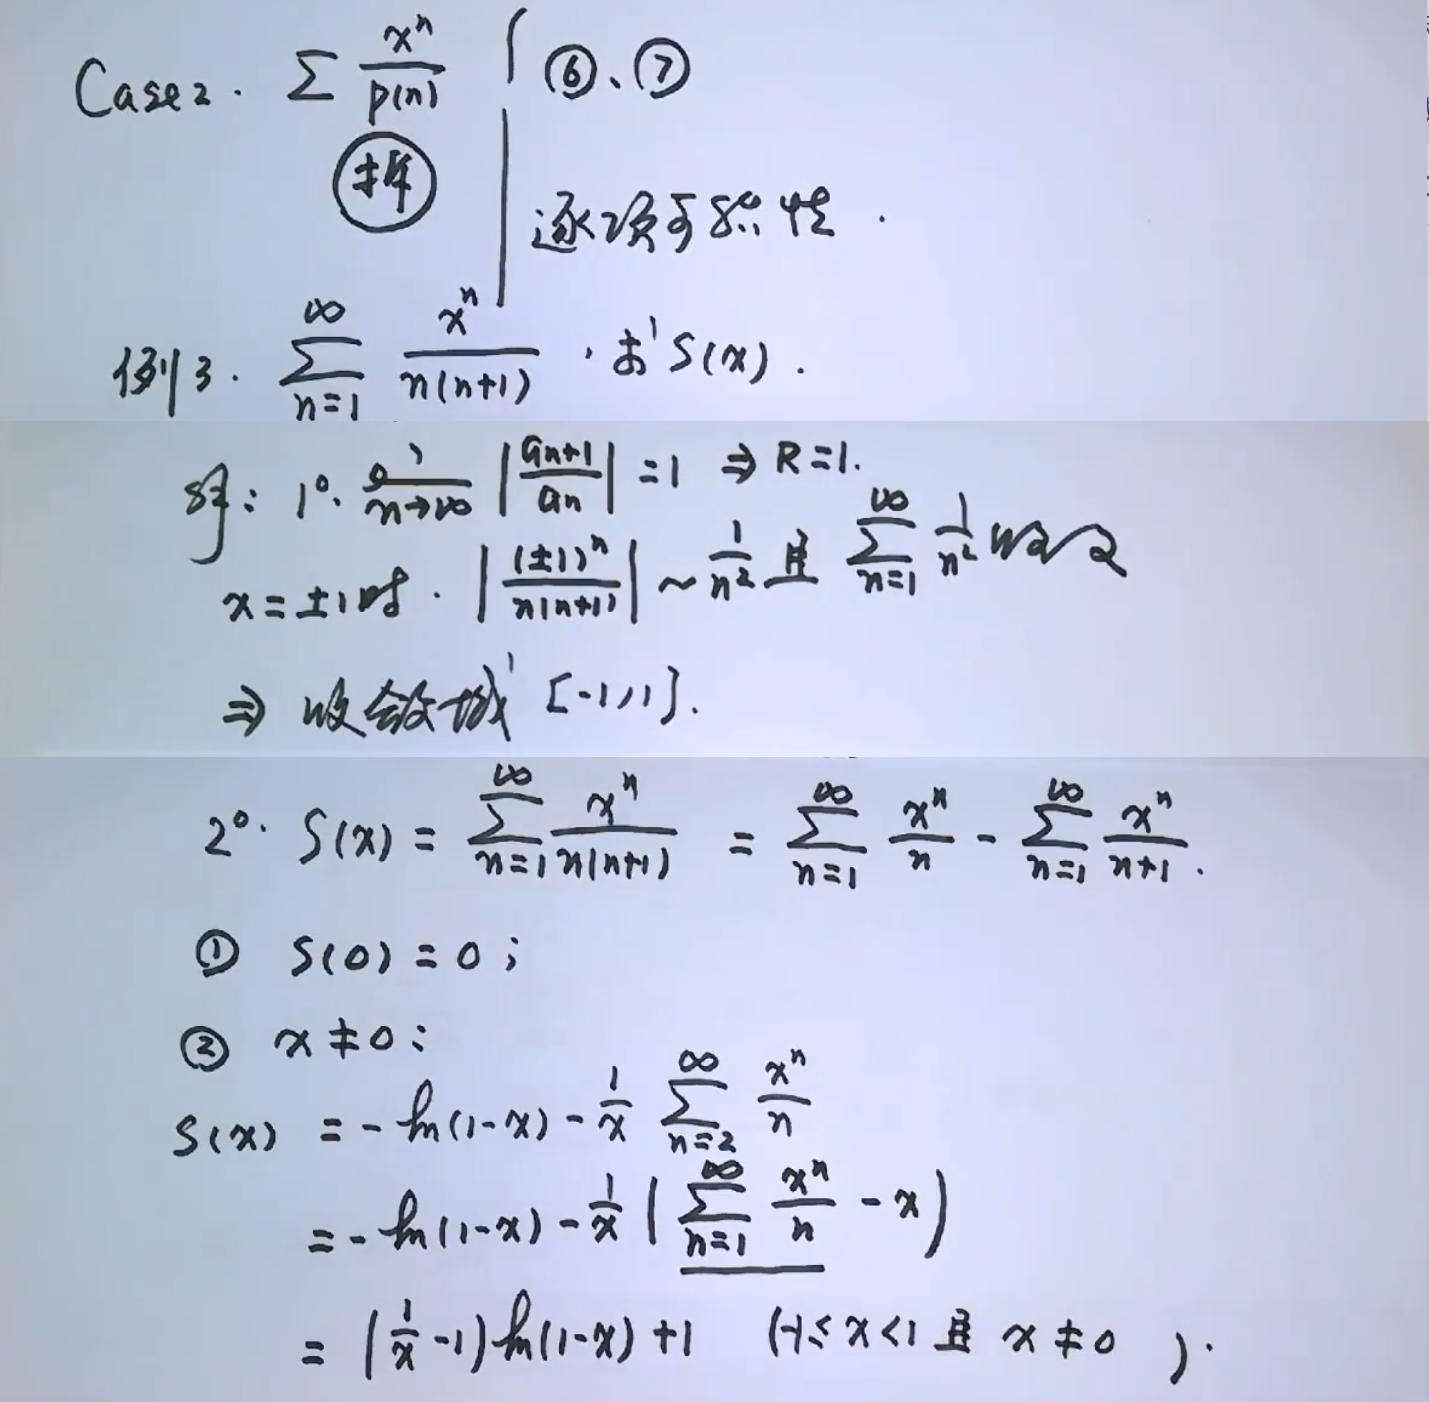 Case 2. Σ xⁿ/P(n) { ⑥、⑦
拆
逐项可导性.
例3. Σ_{n=1}^{∞} xⁿ/(n(n+1)), 求 S(x).
解: 1°. lim_{n→∞} |a_{n+1}/a_n| = 1 ⇒ R=1.
x=±1时. |(±1)ⁿ/(n(n+1))| ~ 1/n² 且 Σ_{n=1}^{∞} 1/n² 收敛
⇒ 收敛域 [-1,1].
2°. S(x) = Σ_{n=1}^{∞} xⁿ/(n(n+1)) = Σ_{n=1}^{∞} xⁿ/n - Σ_{n=1}^{∞} xⁿ/(n+1).
① S(0)=0;
② x≠0:
S(x) = -ln(1-x) - 1/x Σ_{n=2}^{∞} xⁿ/n
= -ln(1-x) - 1/x (Σ_{n=1}^{∞} xⁿ/n - x)
= (1/x -1)ln(1-x)+1 (-1≤x<1 且 x≠0 ).